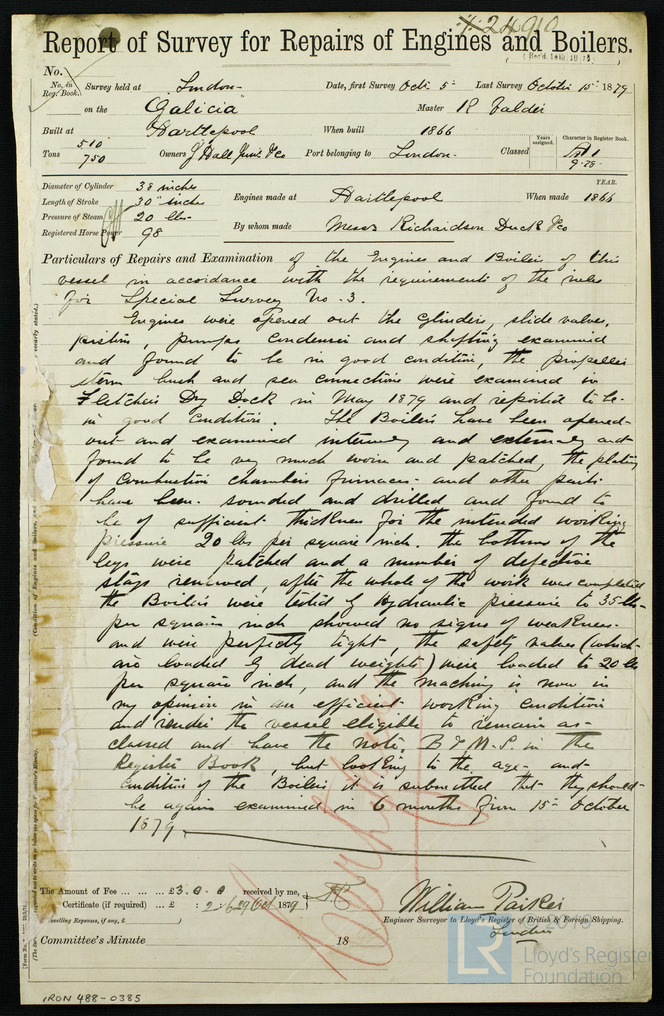 24910
Report of Survey for Repairs of Engines and Boilers.
No.
No. in Reg. Book. Survey held at London Date, first Survey Octr 5th Last Survey October 15th 1879
on the "Galicia" Master R
Built at Hartlepool When built 1866
Tons 510 750 Owners J Hall Junr & Co Port belonging to London Classed Years assigned. Character in Register Book. A 1 9-78
Diameter of Cylinder 38 inches
Length of Stroke 30" inches Engines made at Hartlepool When made YEAR. 1866
Pressure of Steam 20 lbs
Registered Horse Power 98 By whom made Messrs Richardson Duck & Co
Particulars of Repairs and Examination of the Engines and Boilers of this
vessel in accordance with the requirements of the rules
for Special Survey No. 3.
Engines were opened out the Cylinders, slide valves,
pistons, pumps Condenser and shafting examined
and found to be in good condition, the propeller
stern bush and sea connections were examined in
Fletchers Dry Dock in May 1879 and reported to be
in good condition. The Boilers have been opened
out and examined internally and externally and
found to be very much worn and patched, the plating
of Combustion chambers furnaces and other parts
have been sounded and drilled and found to
be of sufficient thickness for the intended working
pressure 20 lbs per square inch. The bottoms of the
legs were patched and a number of defective
stays renewed, after the whole of the work was completed
the Boilers were tested by Hydraulic pressure to 35 lbs
per square inch showed no signs of weakness
and were perfectly tight, the safety valves (which
are loaded by dead weights) were loaded to 20 lbs
per square inch, and the machinery is now in
my opinion in an efficient working condition
and render the vessel eligible to remain as
classed and have the note, B & M.S. in the
Register Book, but looking to the age and
condition of the Boilers it is submitted that they should
be again examined in 6 months from 15th October
1879
The Amount of Fee ... ... ... £3.0.0 received by me,
Certificate (if required) ... £ : 2:6 29 Oct 1879
(Travelling Expenses, if any, £ )
William Parker
Engineer Surveyor to Lloyd's Register of British & Foreign Shipping.
London
Committee's Minute 18
LR
Lloyd's Register
Foundation
IRON 488-0385